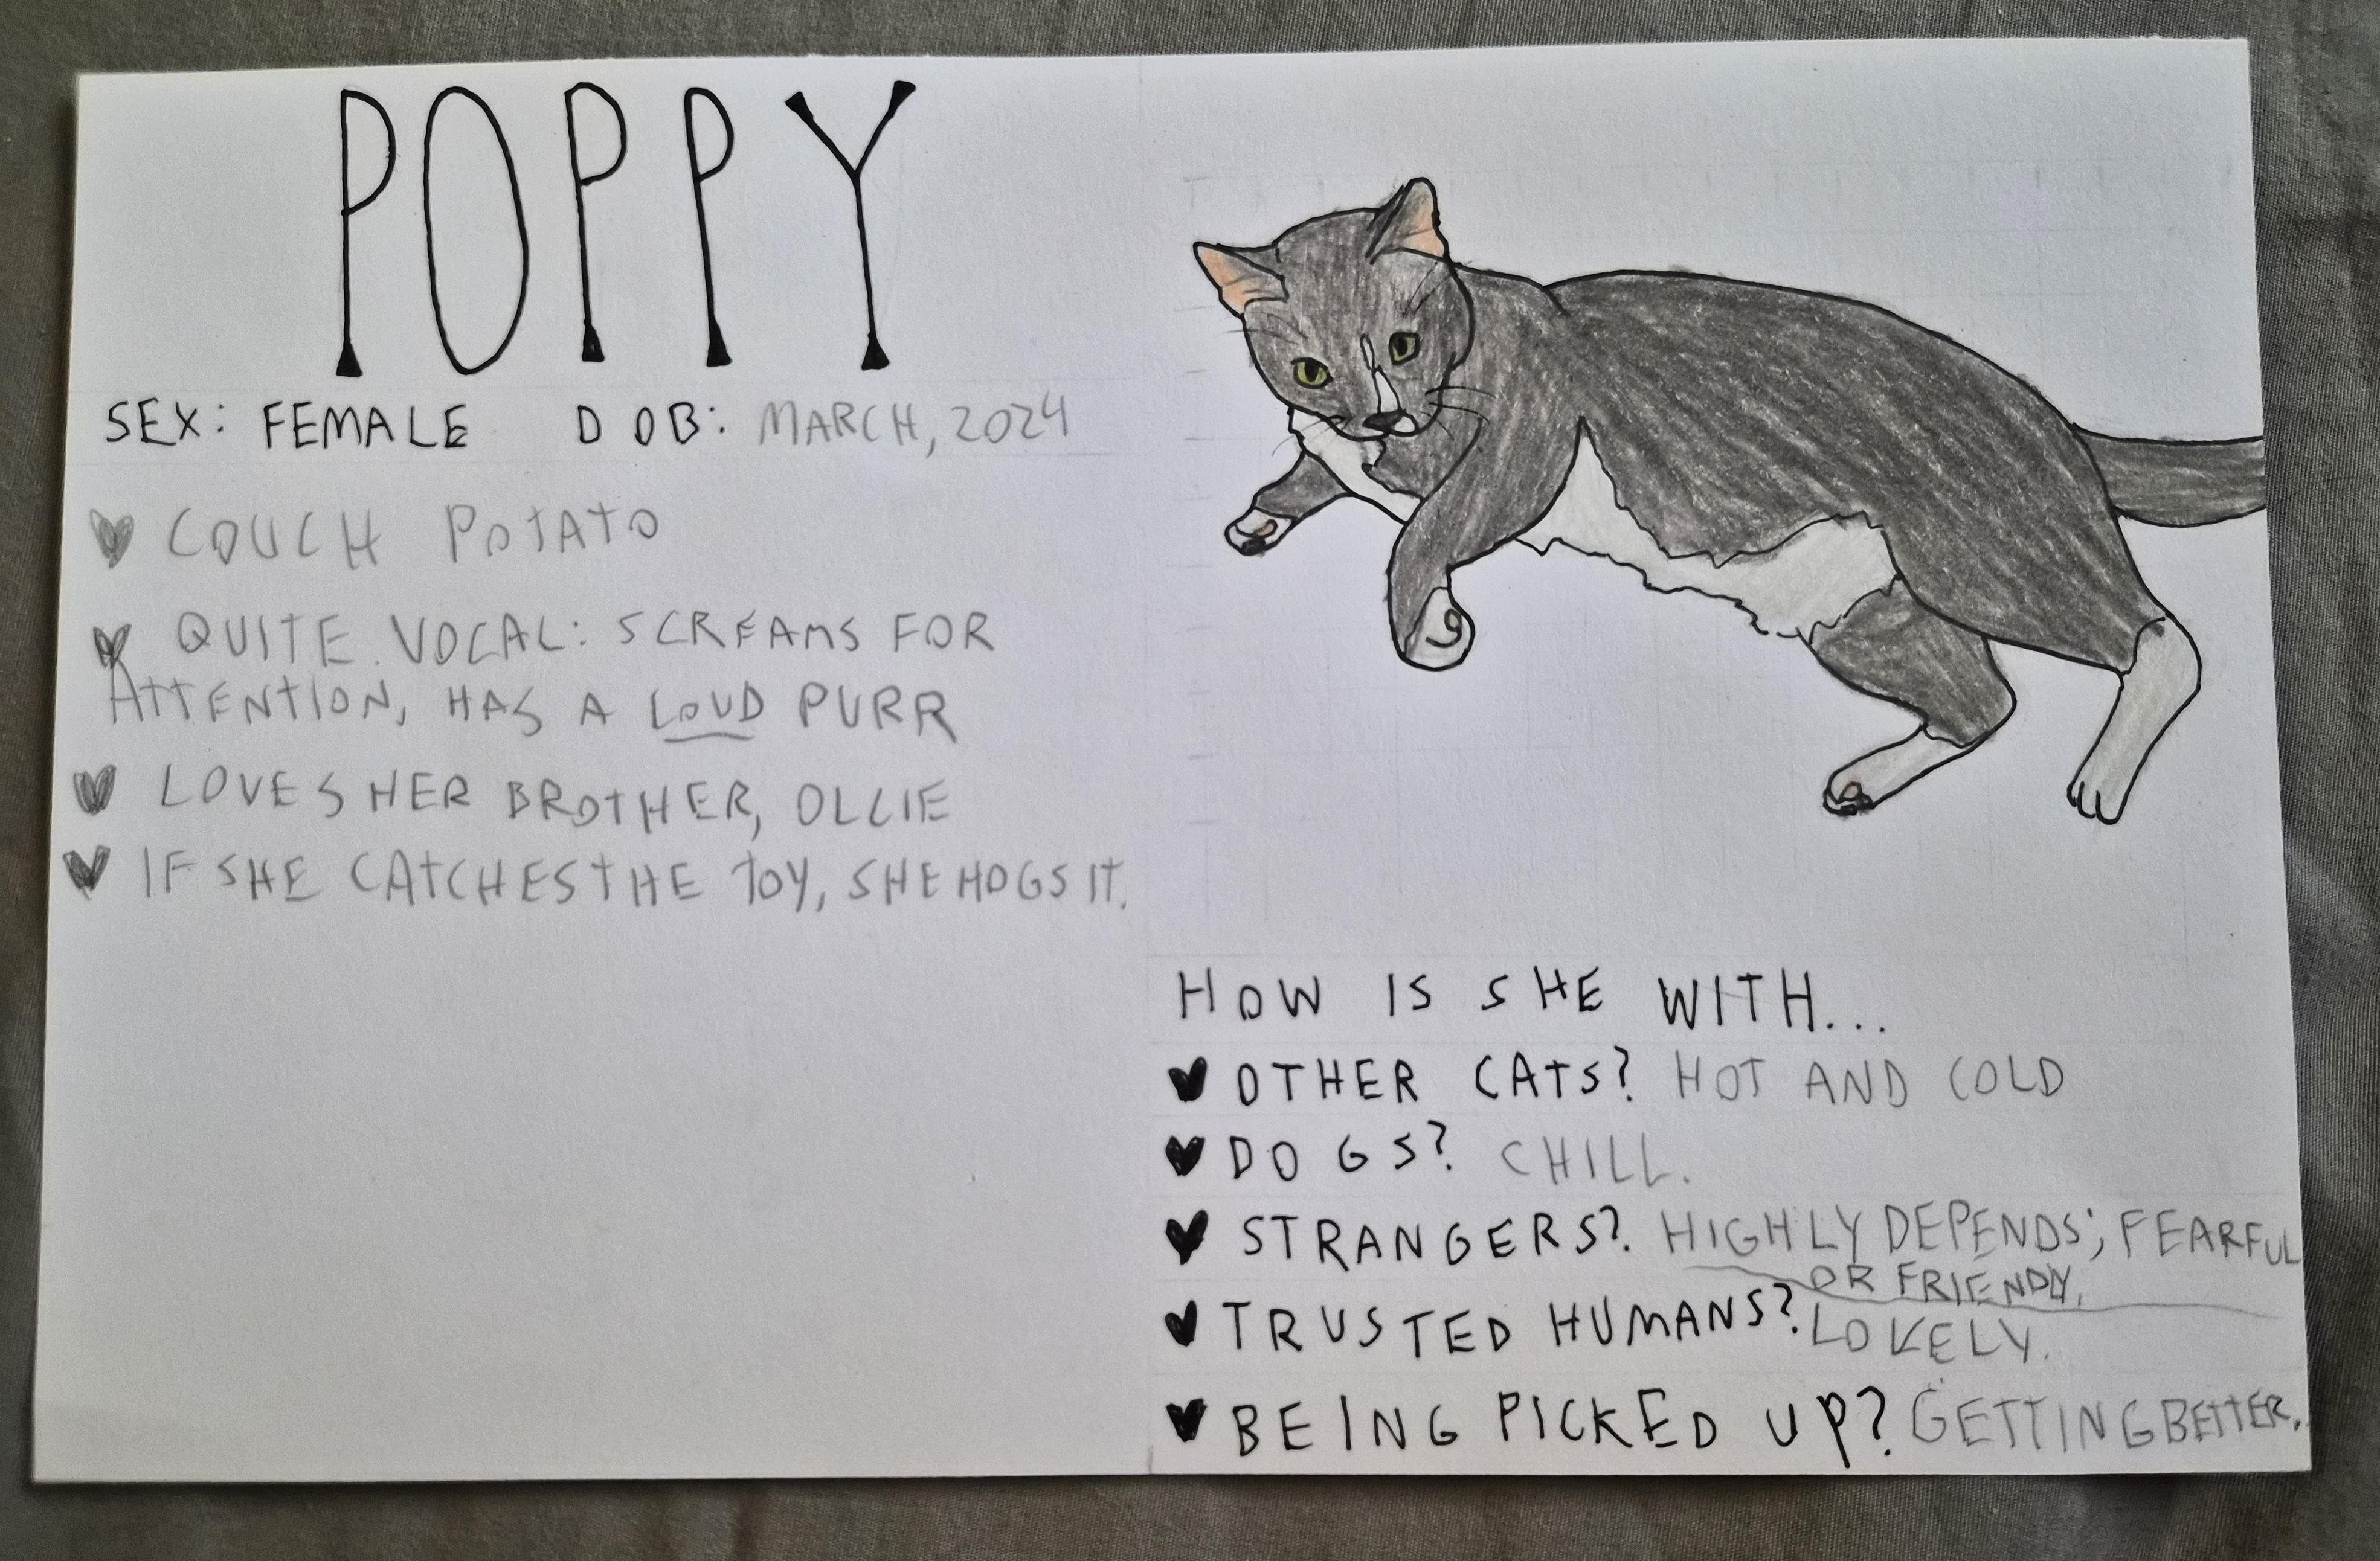 POPPY
SEX: FEMALE DOB: MARCH, 2024
COUCH POTATO
QUITE VOCAL: SCREAMS FOR
ATTENTION, HAS A LOUD PURR
LOVES HER BROTHER, OLLIE
IF SHE CATCHES THE TOY, SHE HOGS IT.
HOW IS SHE WITH...
OTHER CATS? HOT AND COLD
DOGS? CHILL.
STRANGERS? HIGHLY DEPENDS; FEARFUL
OR FRIENDLY.
TRUSTED HUMANS? LOVELY.
BEING PICKED UP? GETTING BETTER.